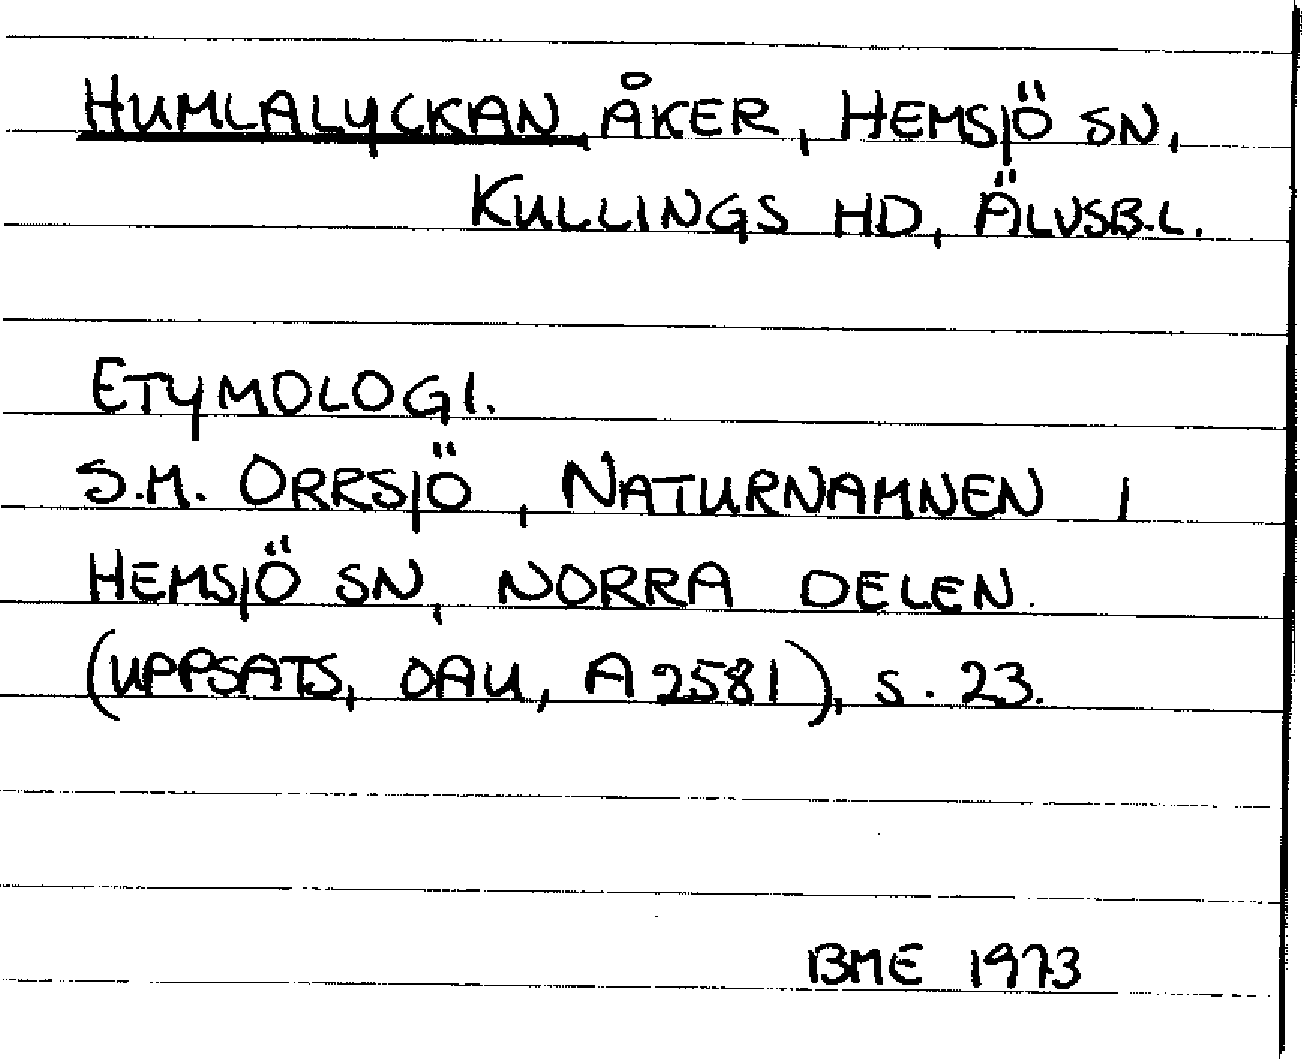 HUMLALYCKAN, ÅKER, HEMSJÖ SN,
KULLINGS HD, ÄLVSB.L.
ETYMOLOGI.
S.M. ORRSJÖ, NATURNAMNEN I
HEMSJÖ SN, NORRA DELEN.
(UPPSATS, OAU, A 2581), S. 23.
BME 1973